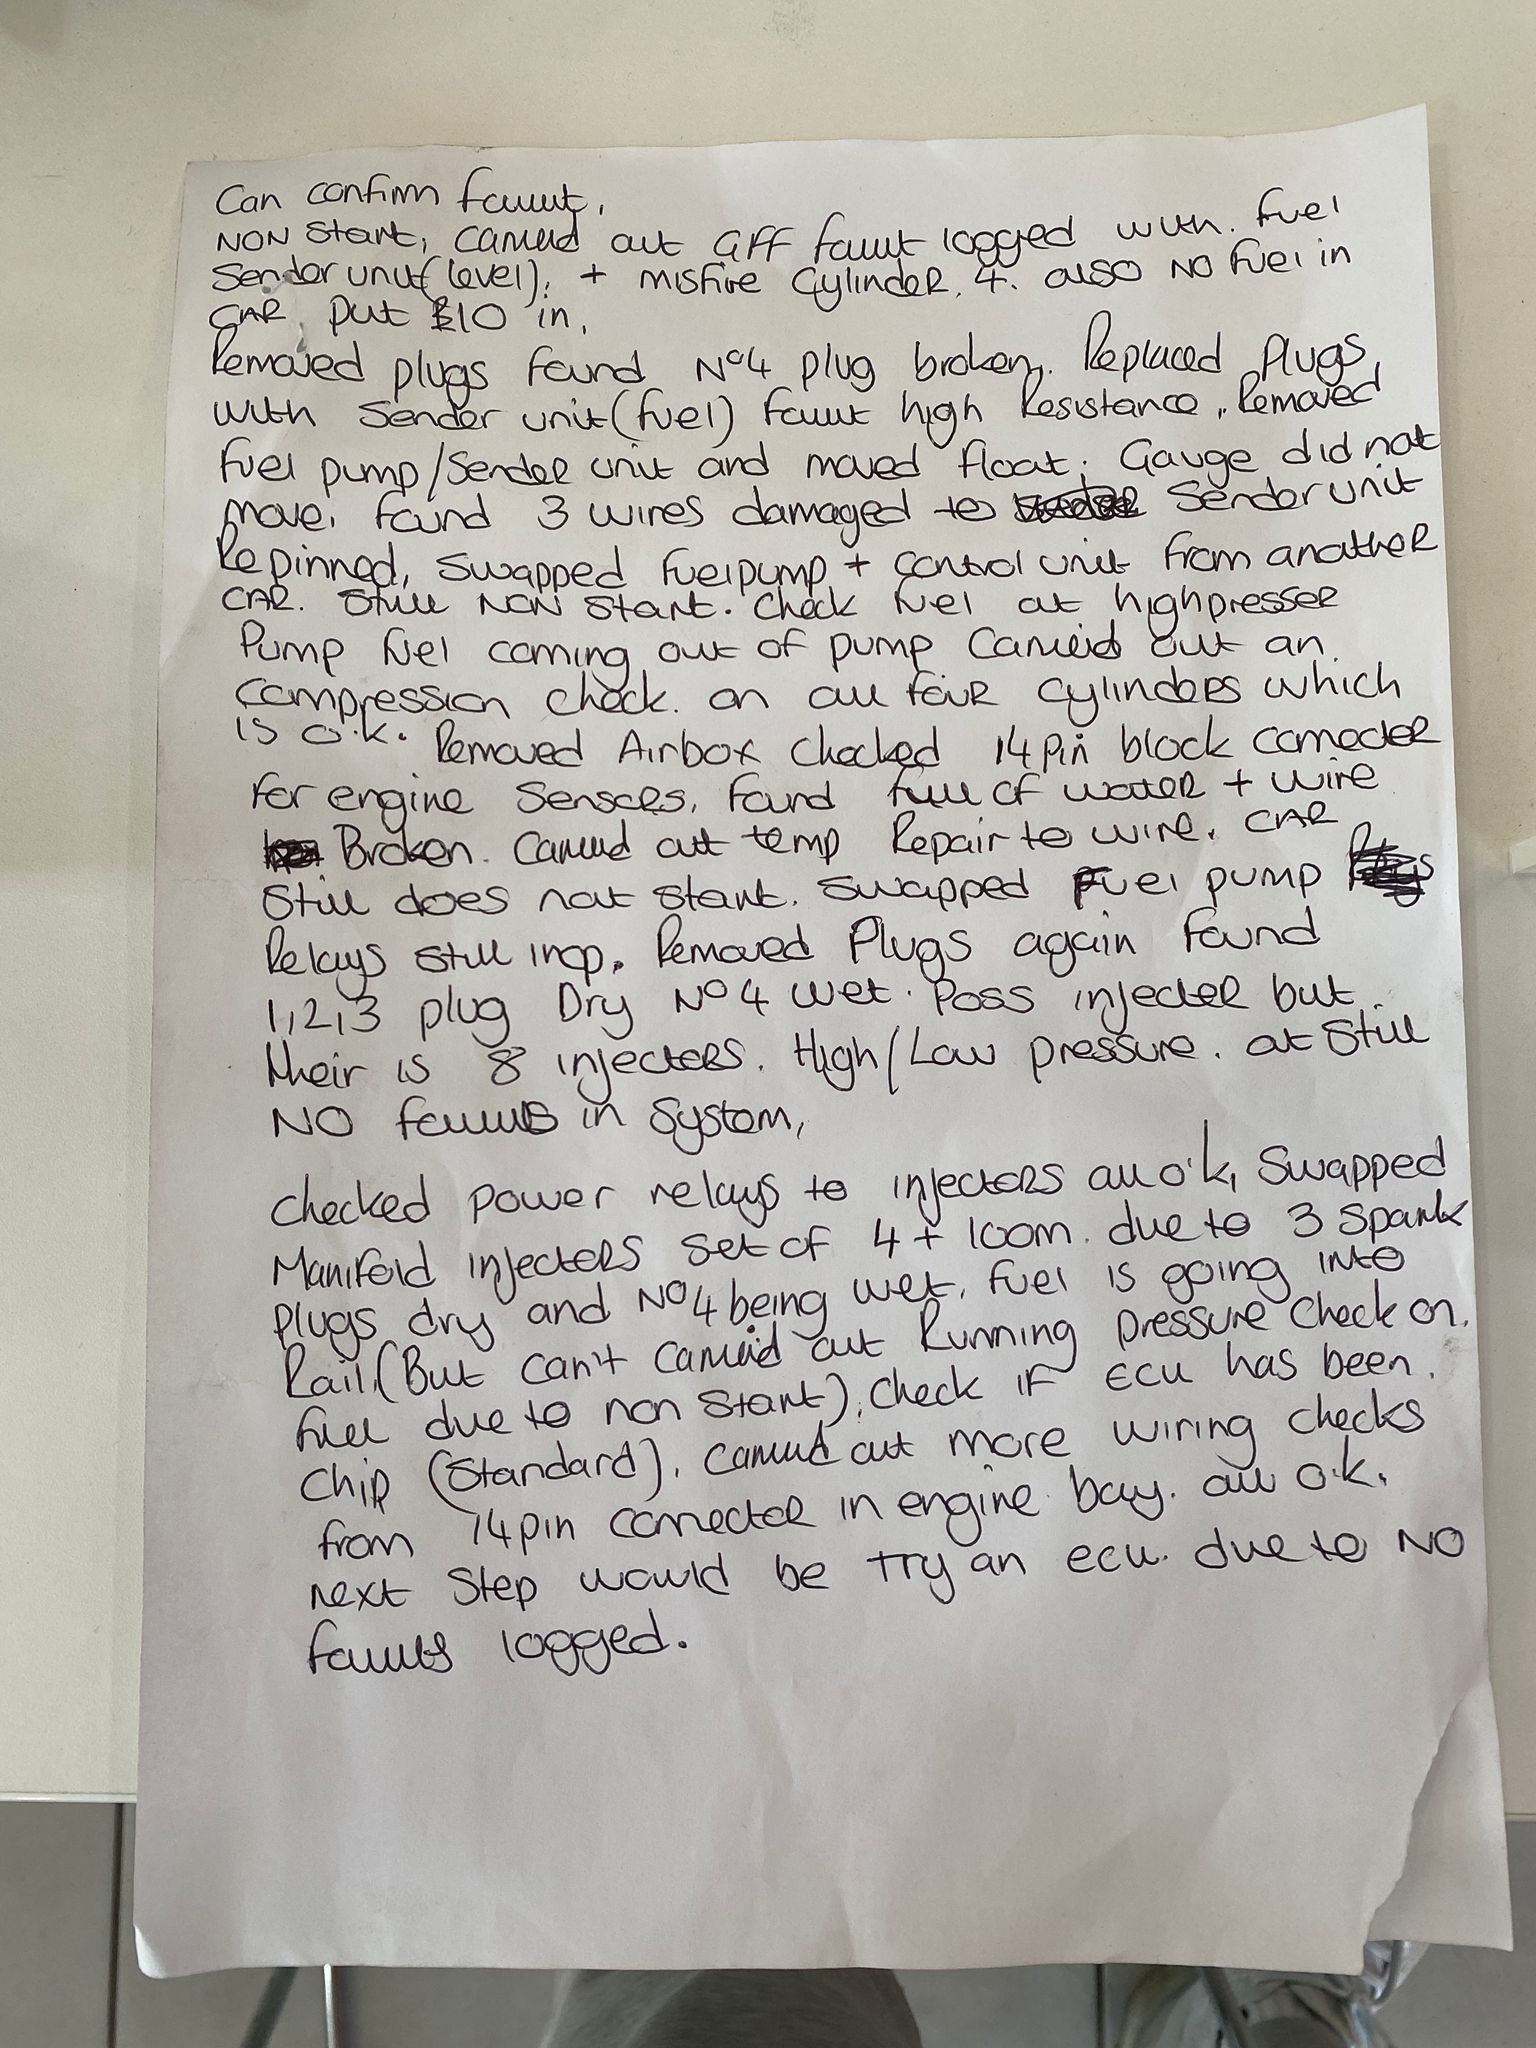 Can confirm fault,
NON Start, carried out GFF fault logged with. Fuel
Sender unit (level), + misfire cylinder. 4. also NO Fuel in
CAR put £10 in,
Removed plugs found No4 plug broken. Replaced Plugs,
with Sender unit (fuel) fault high Resistance. Removed
Fuel pump/Sender unit and moved float; Gauge did not
move, found 3 wires damaged to Sender unit
Repinned, Swapped Fuelpump + control unit from another
CAR. Still NON Start. Check fuel at highpresser
Pump Fuel coming out of pump Carried out an
compression check. on all four cylinders which
is o.k. Removed Airbox checked 14 pin block connector
for engine Sensors, found full of water + wire
Broken. Carried out temp Repair to wire. CAR
Still does not start. Swapped Fuel pump
Relays still inop. Removed Plugs again found
1,2,3 plug Dry No4 wet. Poss injecter but
their is 8 injecters. High/Low pressure. at still
NO faults in System,
Checked power relays to injectors all o.k, Swapped
Manifold injecters set of 4 + loom. due to 3 spark
plugs dry and No4 being wet, fuel is going into
Rail, (But can't carried out Running pressure check on.
fuel due to non start), Check if ECU has been.
Chip (Standard). Carried out more wiring checks
from 14pin connector in engine bay. all o.k.
next Step would be try an ecu. due to NO
faults logged.